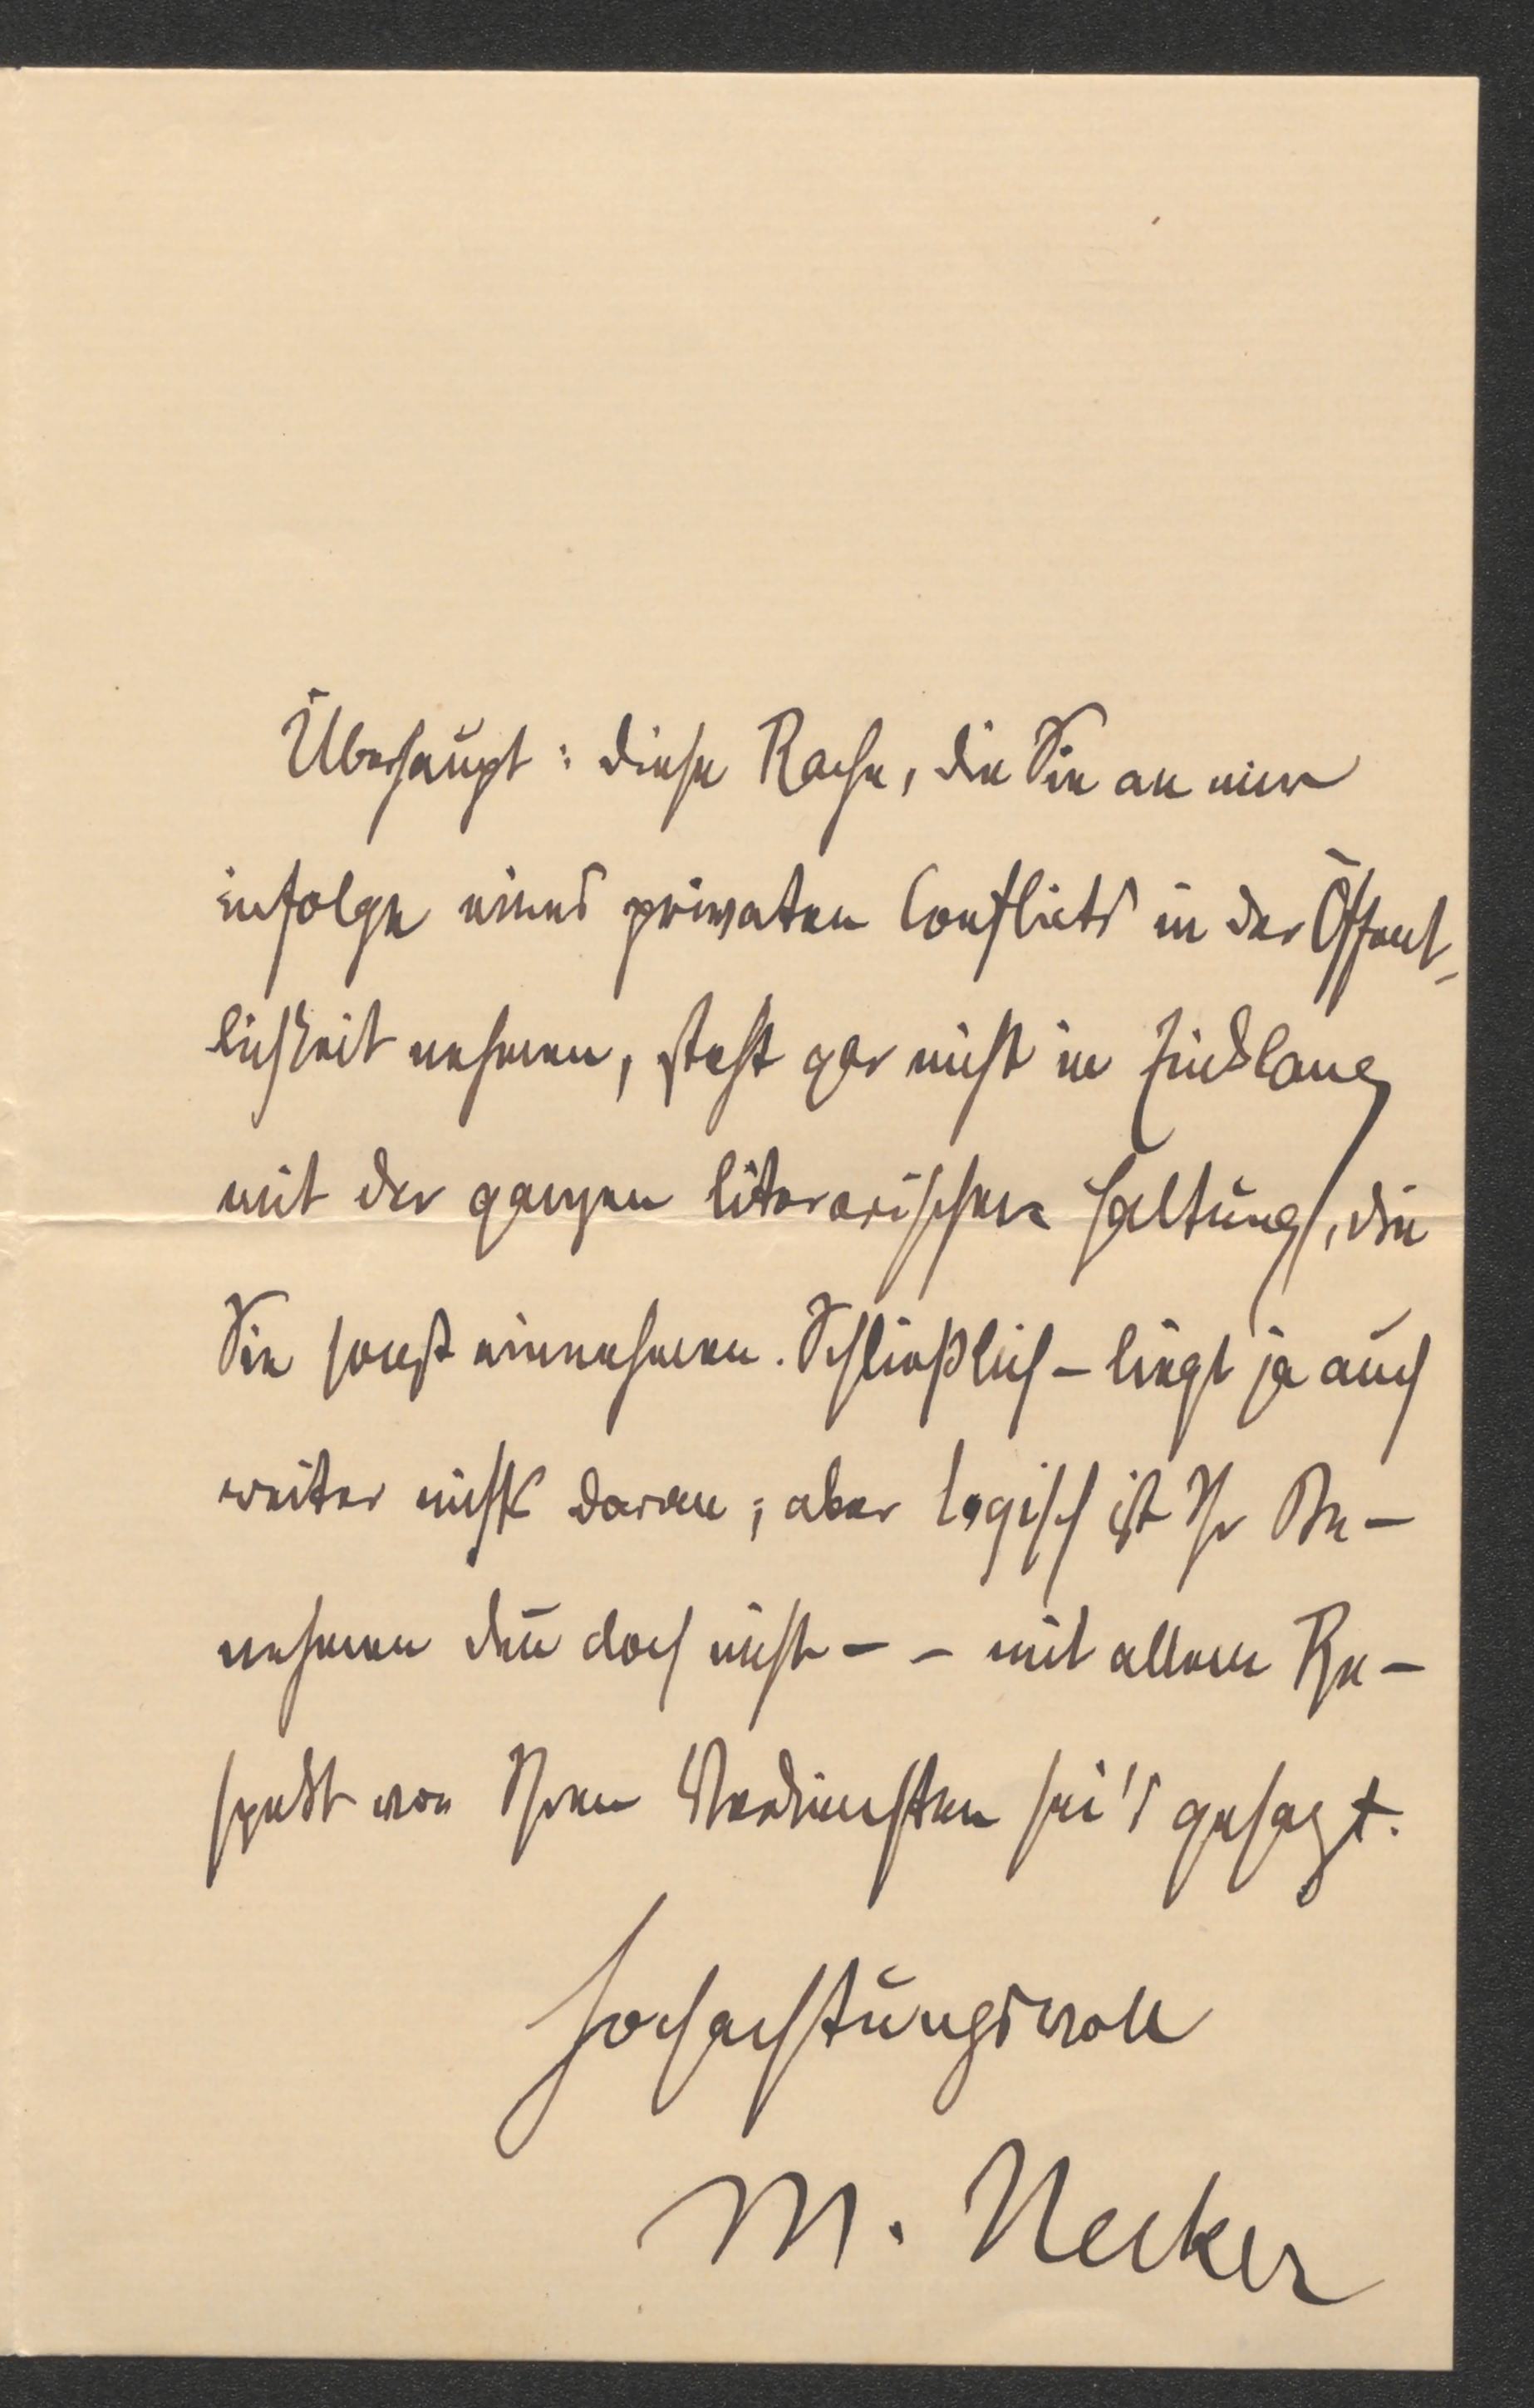 Überhaupt: diese Rache, die Sie an mir
infolge eines privaten Conflicts in der Öffent-
lichkeit nehmen, steht gar nicht in Einklang
mit der ganzen literarischen Haltung, die
Sie sonst einnehmen. Schließlich – liegt ja auch
weiter nichts daran; aber logisch ist Ihr Be-
nehmen den̄ doch nicht – – mit allem Re-
spekt vor Ihren Verdiensten sei's gesagt.
Hochachtungsvoll
M. Necker